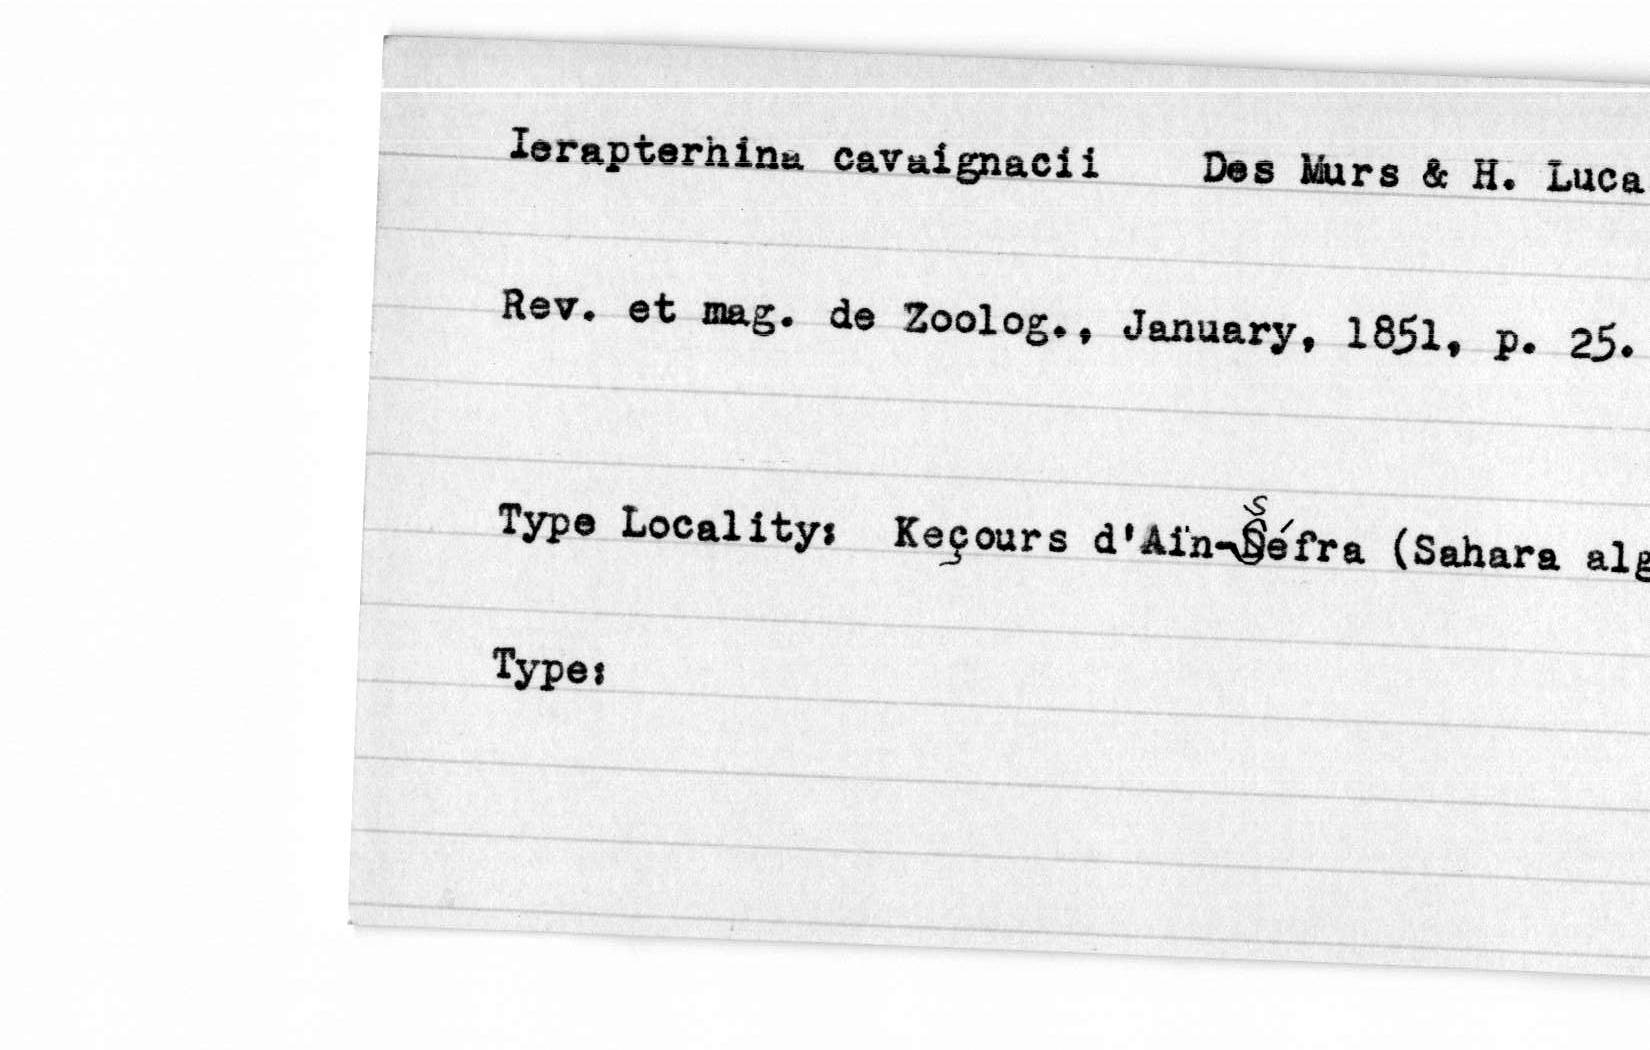 Ierapterhina cavaignacii Des Murs & H. Luca
Rev. et mag. de Zoolog., January, 1851, p. 25.
Type Locality: Keçours d'Aïn-Séfra (Sahara alg
Type: